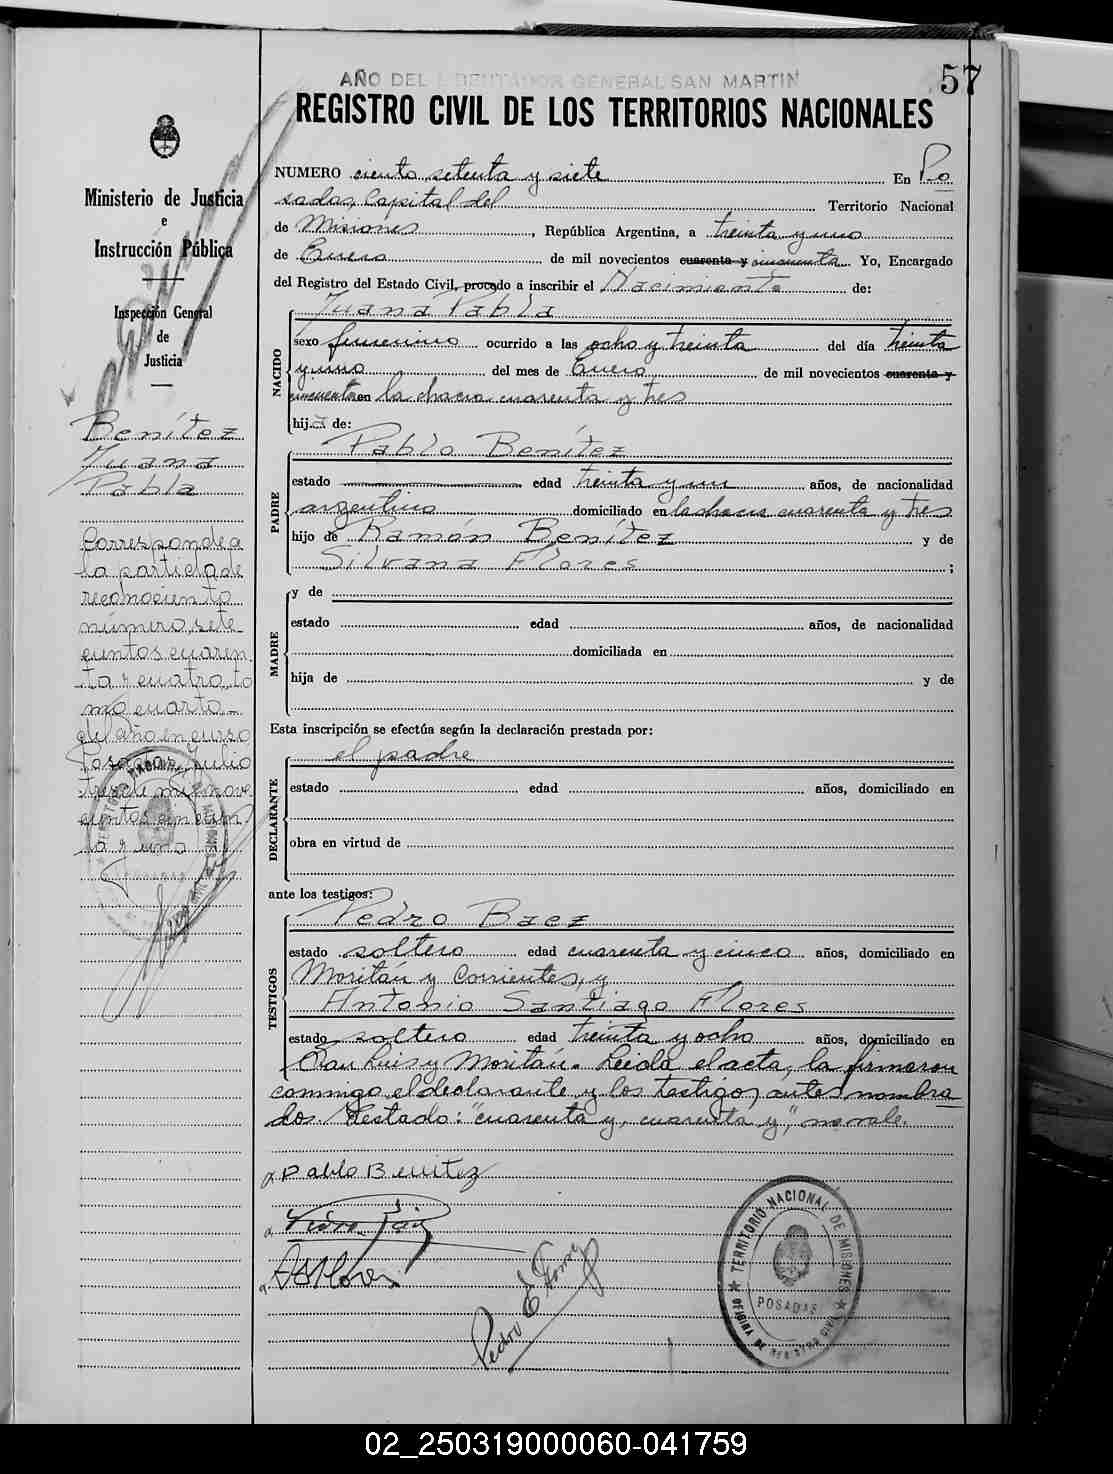 57
AÑO DEL LIBERTADOR GENERAL SAN MARTIN
REGISTRO CIVIL DE LOS TERRITORIOS NACIONALES
Ministerio de Justicia
e
Instrucción Pública
Inspección General
de
Justicia
Benítez
Juana
Pabla
Corresponde a
la partida de
reconocimiento
número sete
cientos cuaren
ta y cuatro, to
mo cuarto
del año en curso
Posadas, Julio
tres de mil nove
cientos cincuen
ta y uno
NUMERO ciento setenta y siete En Po
sadas, Capital del Territorio Nacional
de Misiones, República Argentina, a treinta y uno
de Enero de mil novecientos cuarenta y cincuenta. Yo, Encargado
del Registro del Estado Civil, procedo a inscribir el Nacimiento de:
NACIDO
Juana Pabla
sexo femenino ocurrido a las ocho y treinta del día treinta
y uno del mes de Enero de mil novecientos cuarenta y
cincuenta en la chacra cuarenta y tres
hija de:
PADRE
Pablo Benítez
estado edad treinta y un años, de nacionalidad
argentino domiciliado en la chacra cuarenta y tres
hijo de Ramón Benítez y de
Silvana Flores ;
MADRE
y de
estado edad años, de nacionalidad
domiciliada en
hija de y de
Esta inscripción se efectúa según la declaración prestada por:
DECLARANTE
el padre
estado edad años, domiciliado en
obra en virtud de
ante los testigos:
TESTIGOS
Pedro Baez
estado soltero edad cuarenta y cinco años, domiciliado en
Moritán y Corrientes, y
Antonio Santiago Flores
estado soltero edad treinta y ocho años, domiciliado en
San Luis y Moritán. Leída el acta, la firmaron
conmigo el declarante y los testigos antes nombra
dos. Testado: "cuarenta y, cuarenta y", no vale.
Pablo Benitez
Pedro Baez
Pedro E Gomez
TERRITORIO NACIONAL DE MISIONES
POSADAS
OFICINA DE REGISTRO CIVIL
02_250319000060-041759